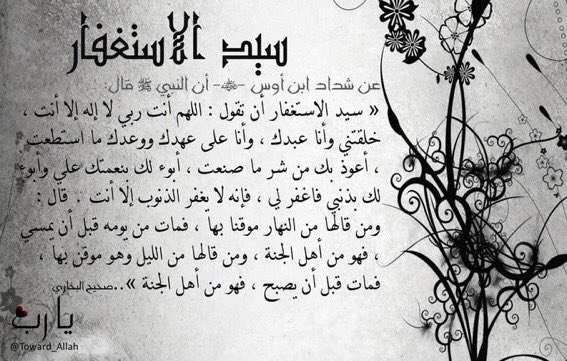 سيد الاستغفار
عن شداد ابن أوس -رضي الله عنه- أن النبي ﷺ قال:
« سيد الاستغفار أن تقول : اللهم أنت ربي لا إله إلا أنت ،
خلقتني وأنا عبدك ، وأنا على عهدك ووعدك ما استطعت
، أعوذ بك من شر ما صنعت ، أبوء لك بنعمتك علي وأبوء
لك بذنبي فاغفر لي ، فإنه لا يغفر الذنوب إلا أنت . قال :
ومن قالها من النهار موقنا بها ، فمات من يومه قبل أن يمسي
، فهو من أهل الجنة ، ومن قالها من الليل وهو موقن بها ،
فمات قبل أن يصبح ، فهو من أهل الجنة »..صحيح البخاري
يا رب
@Toward_Allah